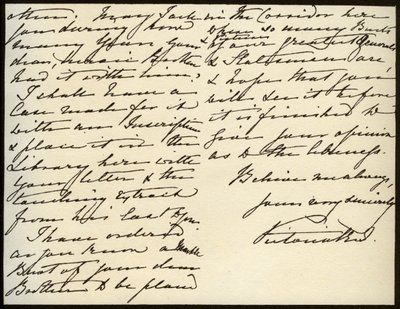 other. May I ask
you during how
many years your
dear, heroic Brother
had it with him?
I shall have a
Case made for it
with an Inscription
& place it in the
Library here with
your letter & the
touching Extract
from his last to you.
I have ordered
as you know a Marble
Bust of your dear
Brother to be placed
in the Corridor here
where so many Busts
& Pictures
of our greatest Generals
& Statesmen are,
& hope that you
will see it before
it is finished to
give your opinion
as to the likeness.
Believe me always,
yours very sincerely
Victoria